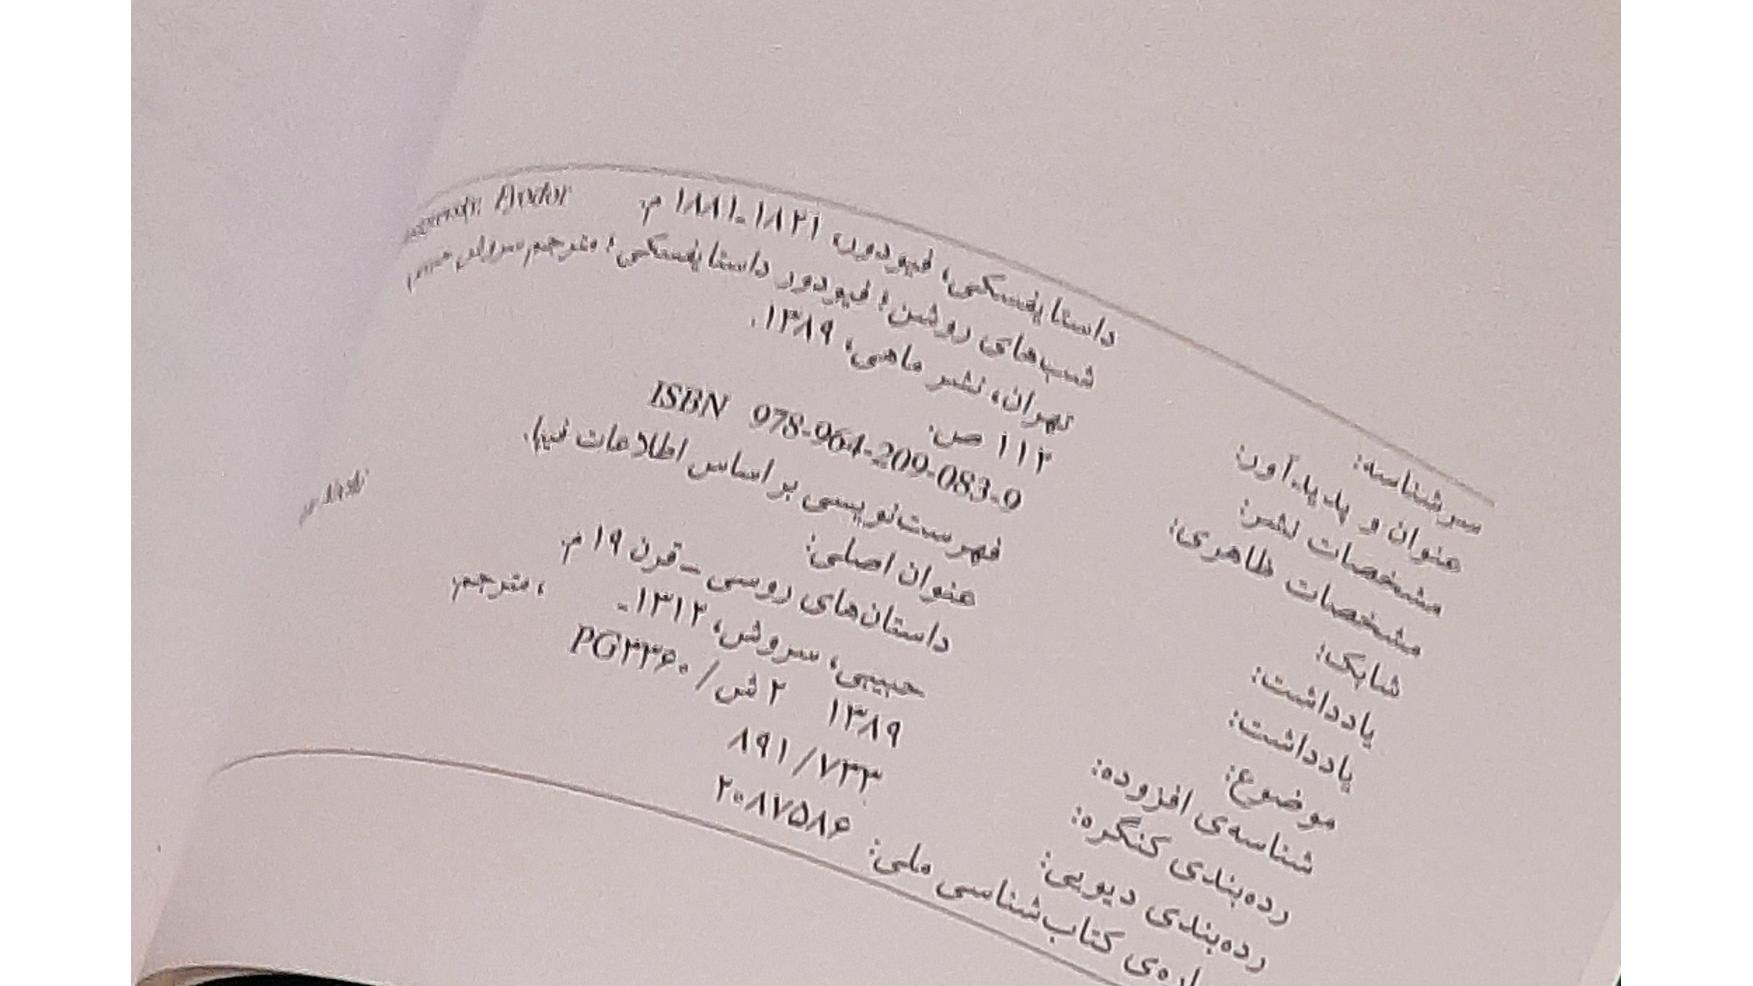 سرشناسه: داستایفسکی، فیودور، ۱۸۲۱-۱۸۸۱ م. Fyodor
عنوان و پدیدآور: شب‌های روشن؛ فیودور داستایفسکی؛ مترجم سروش حبیبی
مشخصات نشر: تهران، نشر ماهی، ۱۳۸۹.
مشخصات ظاهری: ۱۱۲ ص.
شابک: ISBN 978-964-209-083-9
یادداشت: فهرست‌نویسی بر اساس اطلاعات فیپا.
یادداشت: عنوان اصلی:
موضوع: داستان‌های روسی – قرن ۱۹ م.
شناسه‌ی افزوده: حبیبی، سروش، ۱۳۱۲- ، مترجم.
رده‌بندی کنگره: ۱۳۸۹ ۲ ش/ PG۳۳۶۰
رده‌بندی دیویی: ۸۹۱/۷۳۳
کتاب‌شناسی ملی: ۲۰۸۷۵۸۶